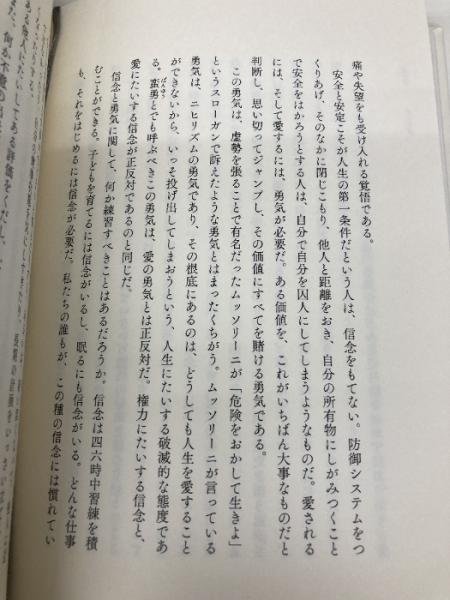 痛や失望をも受け入れる覚悟である。
安全と安定こそが人生の第一条件だという人は、信念をもてない。防御システムをつ
くりあげ、そのなかに閉じこもり、他人と距離をおき、自分の所有物にしがみつくこと
で安全をはかろうとする人は、自分で自分を囚人にしてしまうようなものだ。愛される
には、そして愛するには、勇気が必要だ。ある価値を、これがいちばん大事なものだと
判断し、思い切ってジャンプし、その価値にすべてを賭ける勇気である。
この勇気は、虚勢を張ることで有名だったムッソリーニが「危険をおかして生きよ」
というスローガンで訴えたような勇気とはまったくちがう。ムッソリーニが言っている
勇気は、ニヒリズムの勇気であり、その根底にあるのは、どうしても人生を愛すること
ができないから、いっそ投げ出してしまおうという、人生にたいする破滅的な態度であ
る。蛮勇とでも呼ぶべきこの勇気は、愛の勇気とは正反対だ。権力にたいする信念と、
愛にたいする信念が正反対であるのと同じだ。
信念と勇気に関して、何か練習すべきことはあるだろうか。信念は四六時中習練を積
むことができる。子どもを育てるには信念がいるし、眠るにも信念がいる。どんな仕事
も、それをはじめるには信念が必要だ。私たちの誰もが、この種の信念には慣れてい